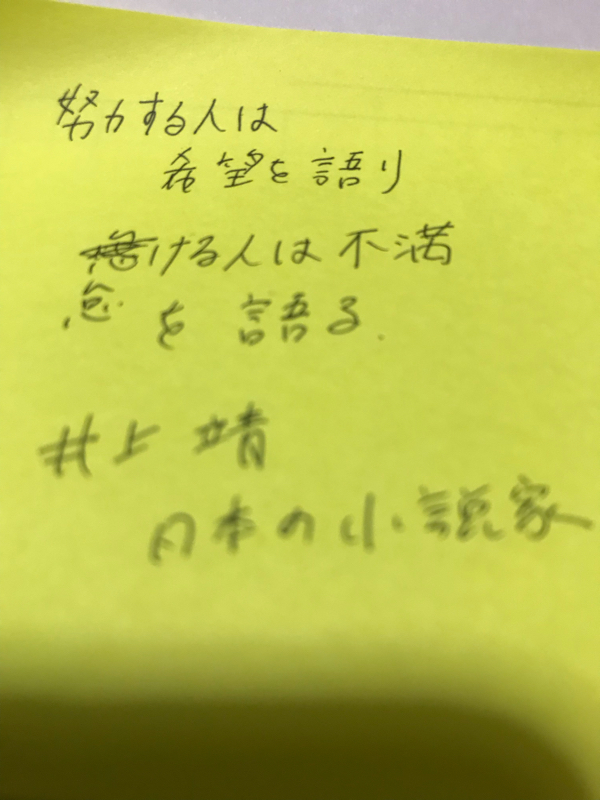 努力する人は
希望を語り
ける人は不満
怠 を 語る.
井上 靖
日本の小説家